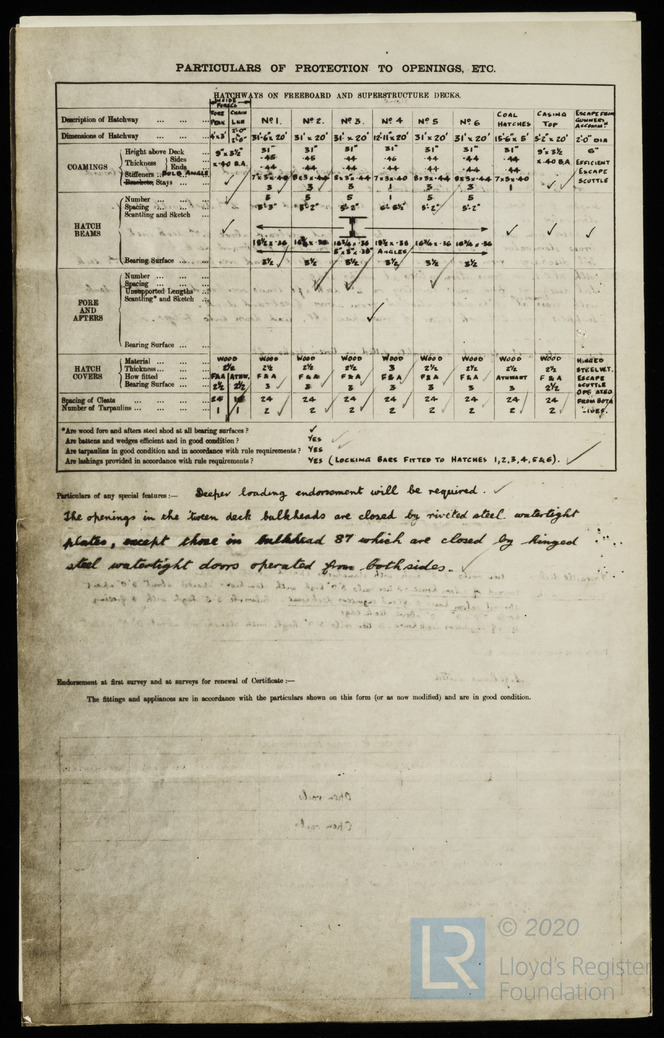 PARTICULARS OF PROTECTION TO OPENINGS, ETC.
HATCHWAYS ON FREEBOARD AND SUPERSTRUCTURE DECKS.
Description of Hatchway ... ... ... FORE PEAK CHAIN LKR Nº 1. Nº 2. Nº 3. Nº 4 Nº 5 Nº 6 COAL HATCHES CASING TOP ESCAPE FROM GUNNERS ACCOMM?
Dimensions of Hatchway ... ... 31'-6"x 20' 31' x 20' 31' x 20' 12'-11"x 20' 31' x 20' 31' x 20' 15'-6"x 5' 5'-2"x 20' 2'-0" DIA
COAMINGS
Height above Deck 9"x 3½" 31" 31" 31" 31" 31" 31" 31" 9"x 3½ 6"
Thickness Sides x .40 B.A. .45 .45 .46 .44 .44 .44 .44 x .40 B.A EFFICIENT
Ends .44 .44 .44 .44 .44 .44 .44 ESCAPE
Stiffeners :- BULB ANGLE 7x3x.40 7x3x.40 SCUTTLE
Brackets, Stays ... 3 3 3 1 3 3 1
HATCH BEAMS
Number ... ... ... 5 5 5 1 5 5
Spacing ... ... ... 5'-3" 5'-2" 5'-2" 5'-2" 5'-2"
Scantling and Sketch
ANGLES
Bearing Surface ... ... 3½ 3½ 3½ 3½ 3½ 3½
FORE AND AFTERS
Number ... ... ...
Spacing ... ... ...
Unsupported Lengths*
Scantling* and Sketch
Bearing Surface ... ...
HATCH COVERS
Material ... ... ... WOOD WOOD WOOD WOOD WOOD WOOD WOOD WOOD WOOD HINGED
Thickness ... ... ... 2½ 2½ 2½ 2½ 3 2½ 2½ 2½ 2½ STEEL WT.
How fitted ... ... F&A ATHW. F & A F & A F & A F & A F & A F & A ATHWART F & A ESCAPE
Bearing Surface ... ... 2½ 2½ 3 3 3 3 3 3 3 2½ SCUTTLE
OPERATED
Spacing of Cleats ... ... 24 24 24 24 24 24 24 24 24 FROM BOTH
Number of Tarpaulins ... ... 1 1 2 2 2 2 2 2 2 2 SIDES.
*Are wood fore and afters steel shod at all bearing surfaces ? ✓
Are battens and wedges efficient and in good condition ? YES
Are tarpaulins in good condition and in accordance with rule requirements ? YES
Are lashings provided in accordance with rule requirements ? YES (LOCKING BARS FITTED TO HATCHES 1,2,3,4,5&6).
Particulars of any special features :— Deeper loading endorsement will be required.
The openings in the 'tween deck bulkheads are closed by riveted steel watertight
plates, except those in bulkhead 87 which are closed by hinged
steel watertight doors operated from both sides.
Endorsement at first survey and at surveys for renewal of Certificate :—
The fittings and appliances are in accordance with the particulars shown on this form (or as now modified) and are in good condition.
LR
© 2020
Lloyd's Register
Foundation